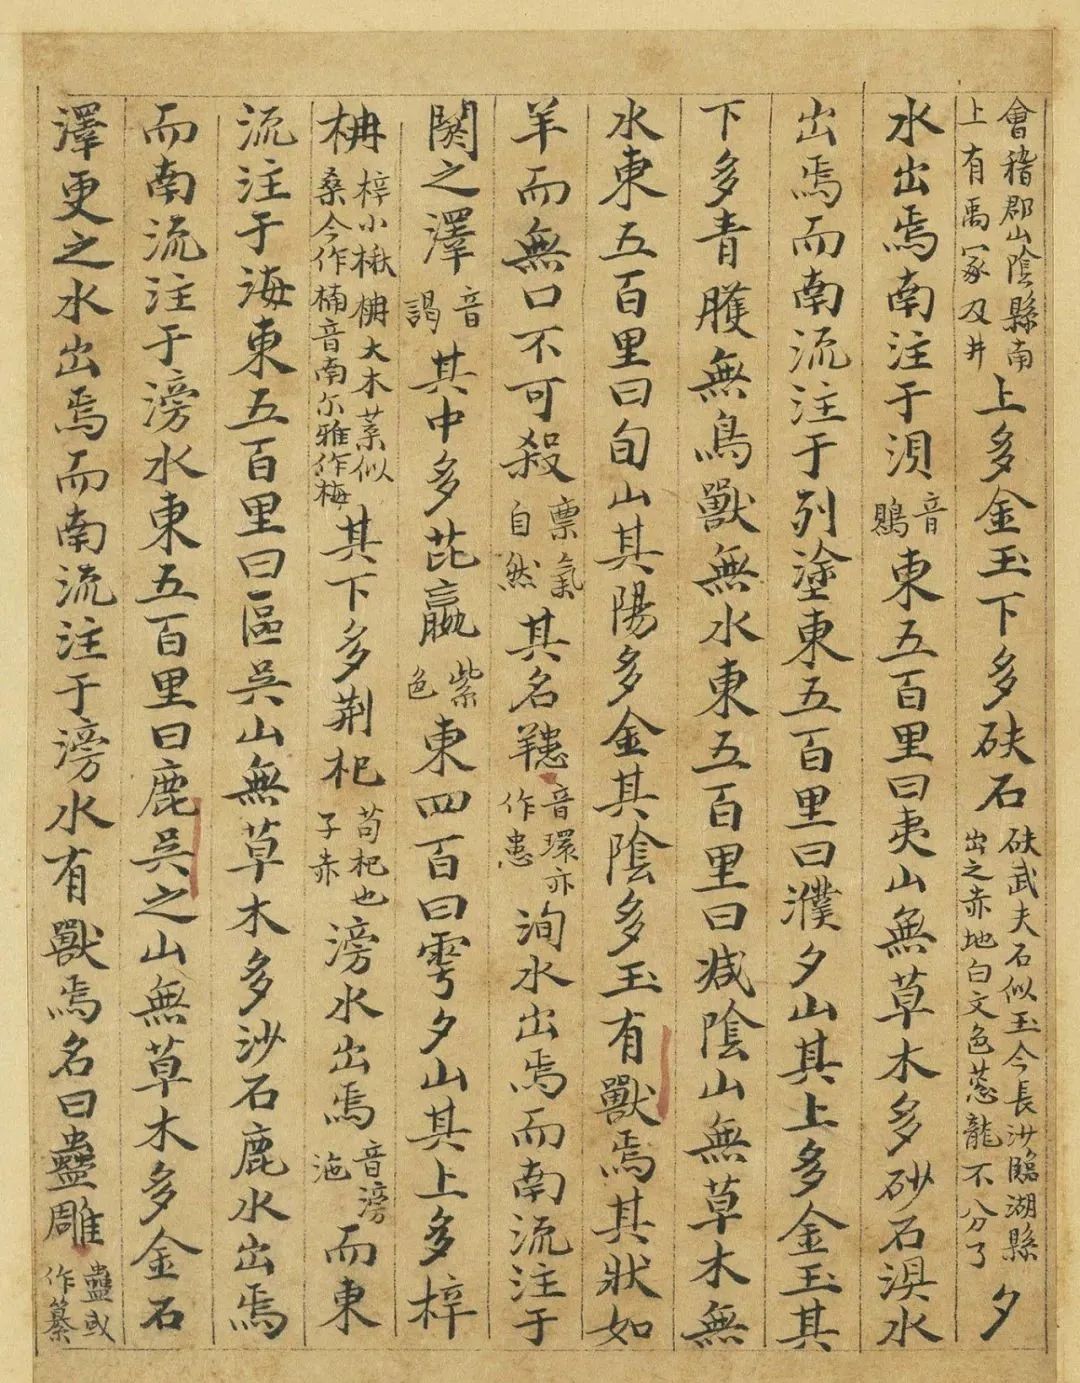 會稽郡山陰縣南上有禹冢及井上多金玉下多砆石砆武夫石似玉今長沙臨湖縣出之赤地白文色蔥龍不分了夕
水出焉南注于湨音鶪東五百里曰夷山無草木多砂石湨水
出焉而南流注于列塗東五百里曰濮夕山其上多金玉其
下多青雘無鳥獸無水東五百里曰减陰山無草木無
水東五百里曰旬山其陽多金其陰多玉有獸焉其狀如
羊而無口不可殺稟氣自然其名䍺音環亦作患洵水出焉而南流注于
閼之澤音謁其中多芘蠃紫色東四百曰雩夕山其上多梓
柟梓小楸柟大木葉似桑今作楠音南尔雅作梅其下多荆杞苟杞也子赤滂水出焉音滂沲而東
流注于海東五百里曰區吳山無草木多沙石鹿水出焉
而南流注于滂水東五百里曰鹿吳之山無草木多金石
澤更之水出焉而南流注于滂水有獸焉名曰蠱雕蠱或作纂